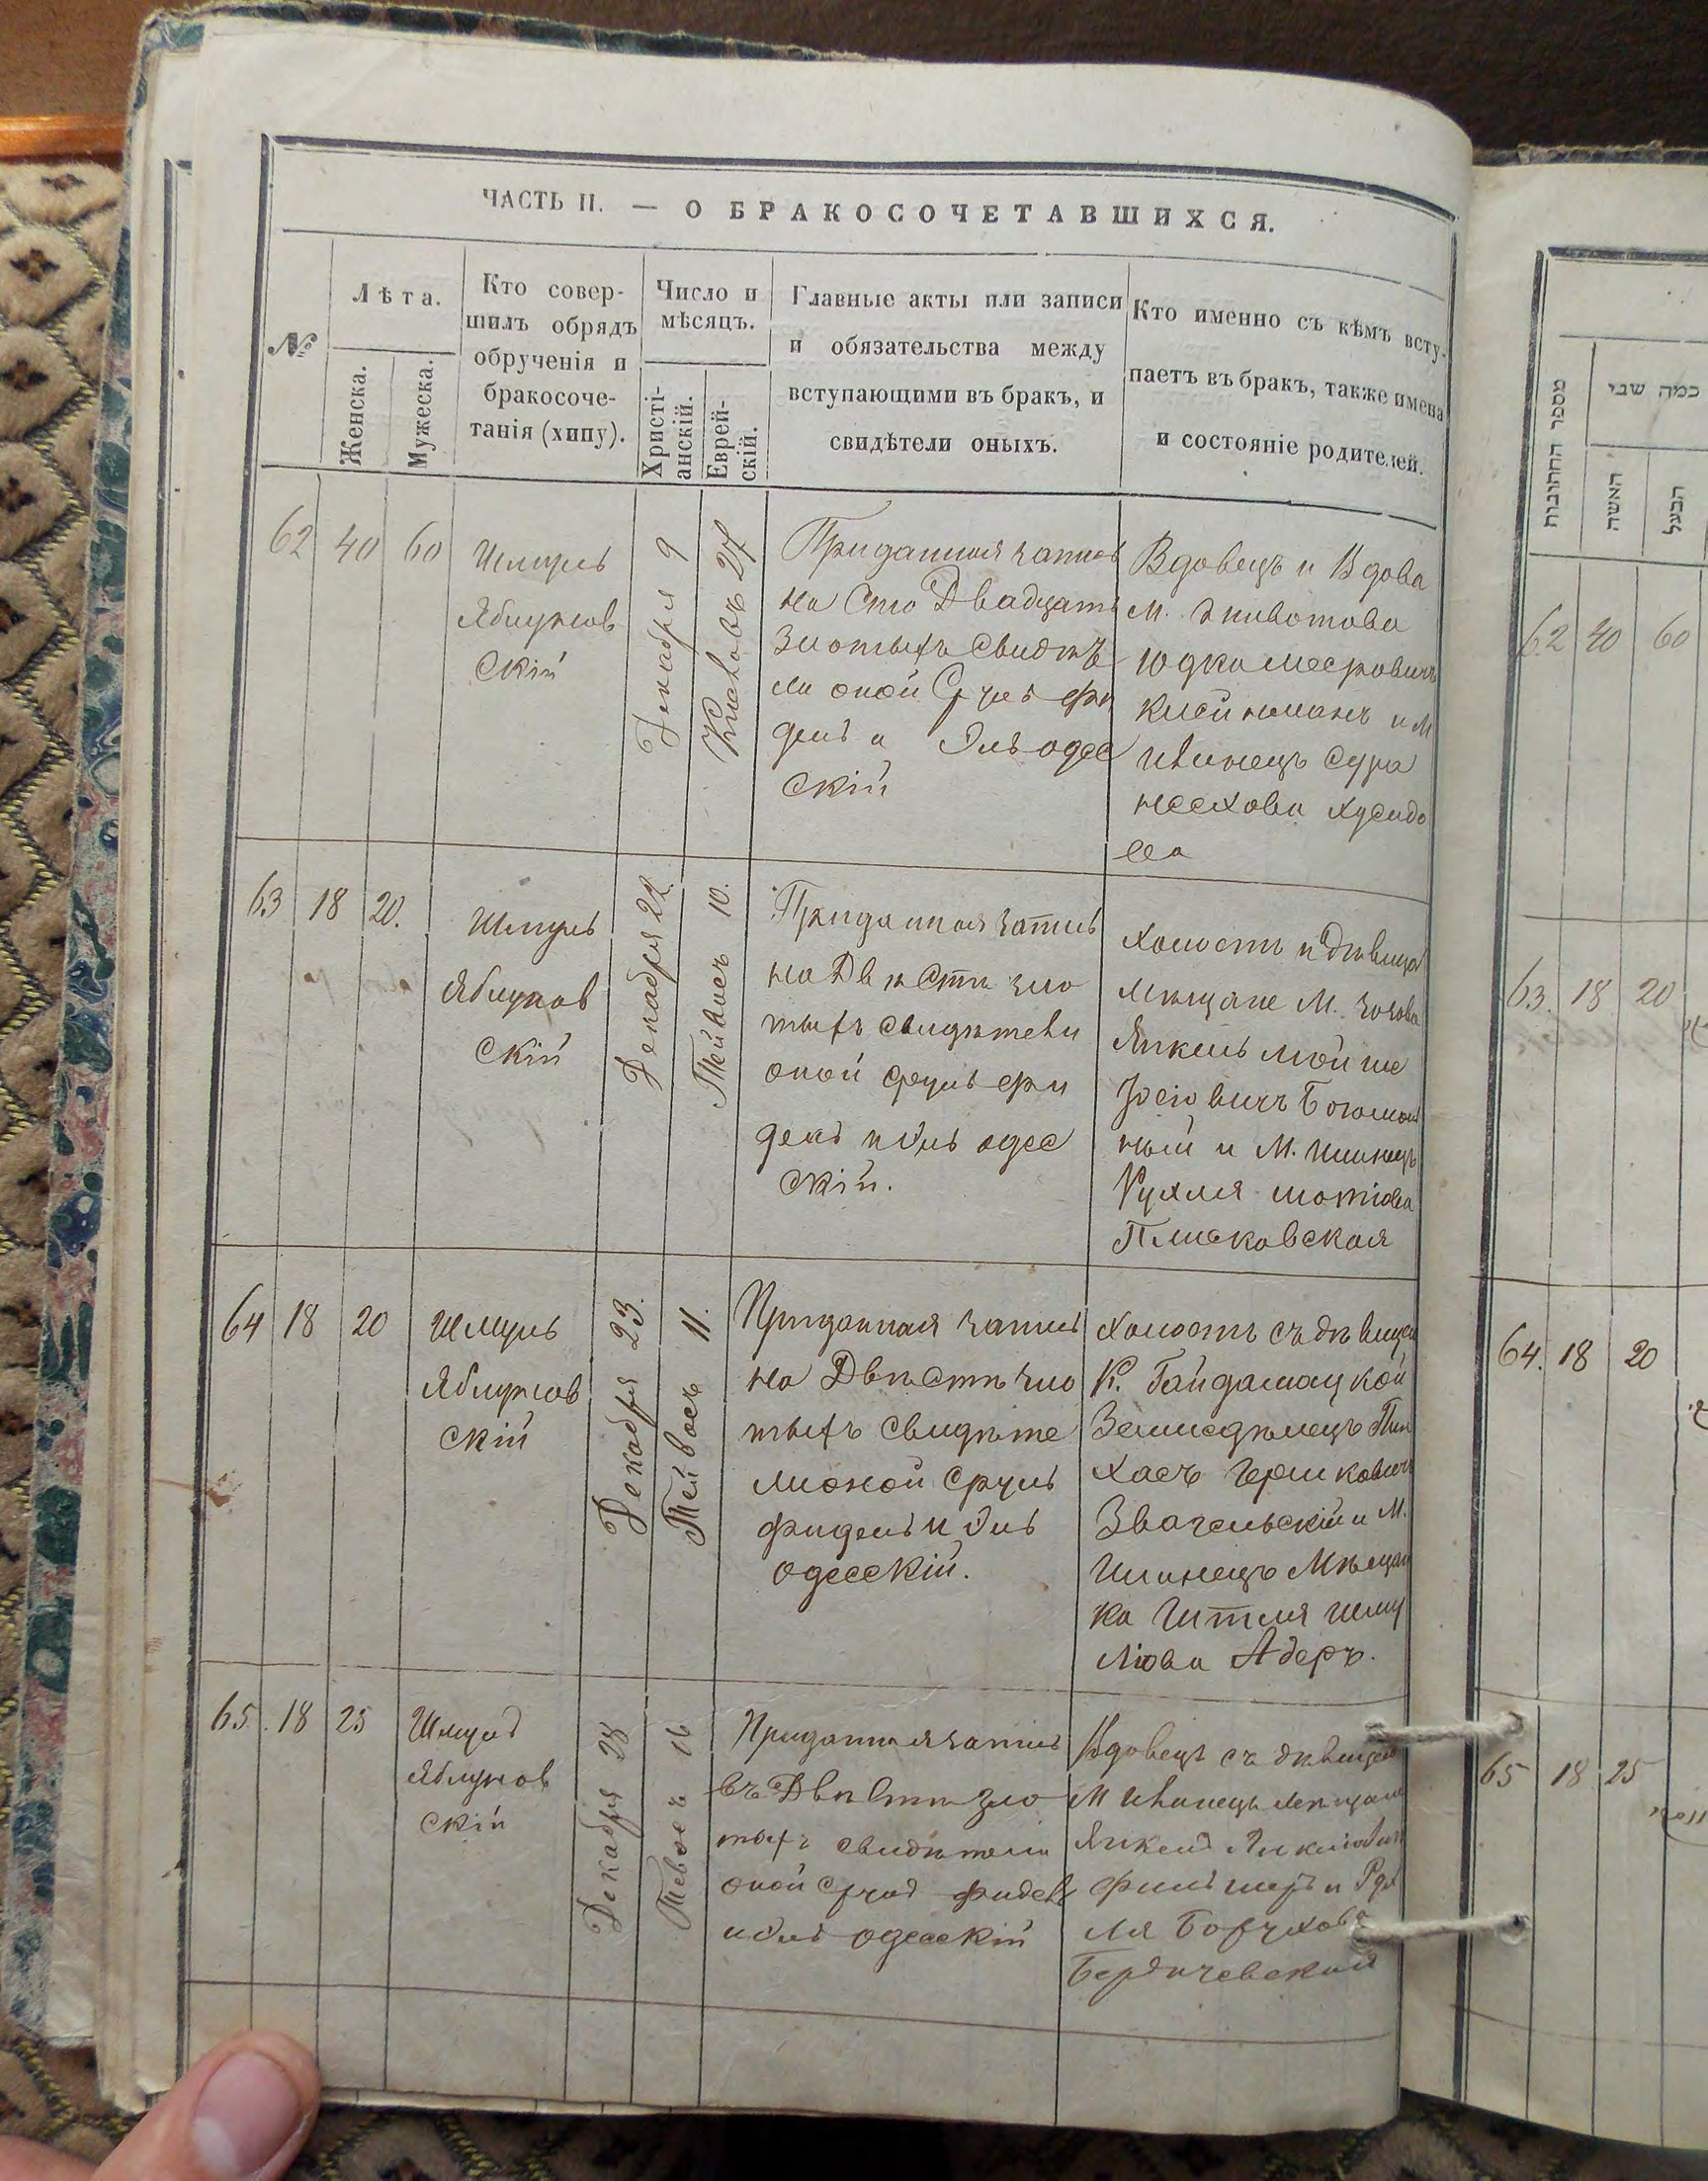 ЧАСТЬ II. — О БРАКОСОЧЕТАВШИХСЯ.
№
Лѣта.
Женска.
Мужеска.
Кто совер-
шилъ обрядъ
обрученія и
бракосоче-
танія (хипу).
Число и
мѣсяцъ.
Христі-
анскій.
Еврей-
скій.
Главные акты или записи
и обязательства между
вступающими въ бракъ, и
свидѣтели оныхъ.
Кто именно съ кѣмъ всту-
паетъ въ бракъ, также имена
и состояніе родителей.
62 40 60
Шмуль
Яблунов
скій
Декабря 9
27
Приданная запись
на Сто Двадцать
Злотыхъ Свидѣтѣ
ли оной Сруль Фи
дель и Эль одес
скій
Вдовецъ и Вдова
М. Животова
Юдко
и М
Илинецъ Сура
63 18 20.
Шмуль
Яблунов
скій
Декабря 22.
Тейвесъ 10.
Приданная запись
на Двѣсти зло
тыхъ свидѣтели
оной Сруль Фи
дель и Эль одес
скій.
Холостъ и дѣвица
Мещане М.
Янкель Мойше
и М. Илинецъ
Рухля
Плисковская
64 18 20
Шмуль
Яблунов
скій
Декабря 23.
Тейвесъ 11.
Приданная запись
на Двѣсти зло
тыхъ Свидѣте
ли оной Сруль
Фидель и Эль
одесскій.
Холостъ съ дѣвицей
К. Гайдамацкой
Земледѣлецъ Пин
хасъ Гершковичъ
Звагельскій и М.
Илинецъ Мѣщан
ка Гитля Шму
лiова Адеръ.
65. 18 25
Шмуль
Яблунов
скій
Декабря 28
Тевесъ 16
Приданная запись
въ Двѣсти зло
тыхъ свидѣтели
оной Сруль Фидель
и Эль одесскій
Вдовецъ съ дѣвицею
М Илинецъ Мещане
Янкель
и
ля Борухова
Бердичевская
מספר החתונות
כמה שני
האשה
הבעל
62 40 60
63. 18 20
64. 18 20
65 18 25